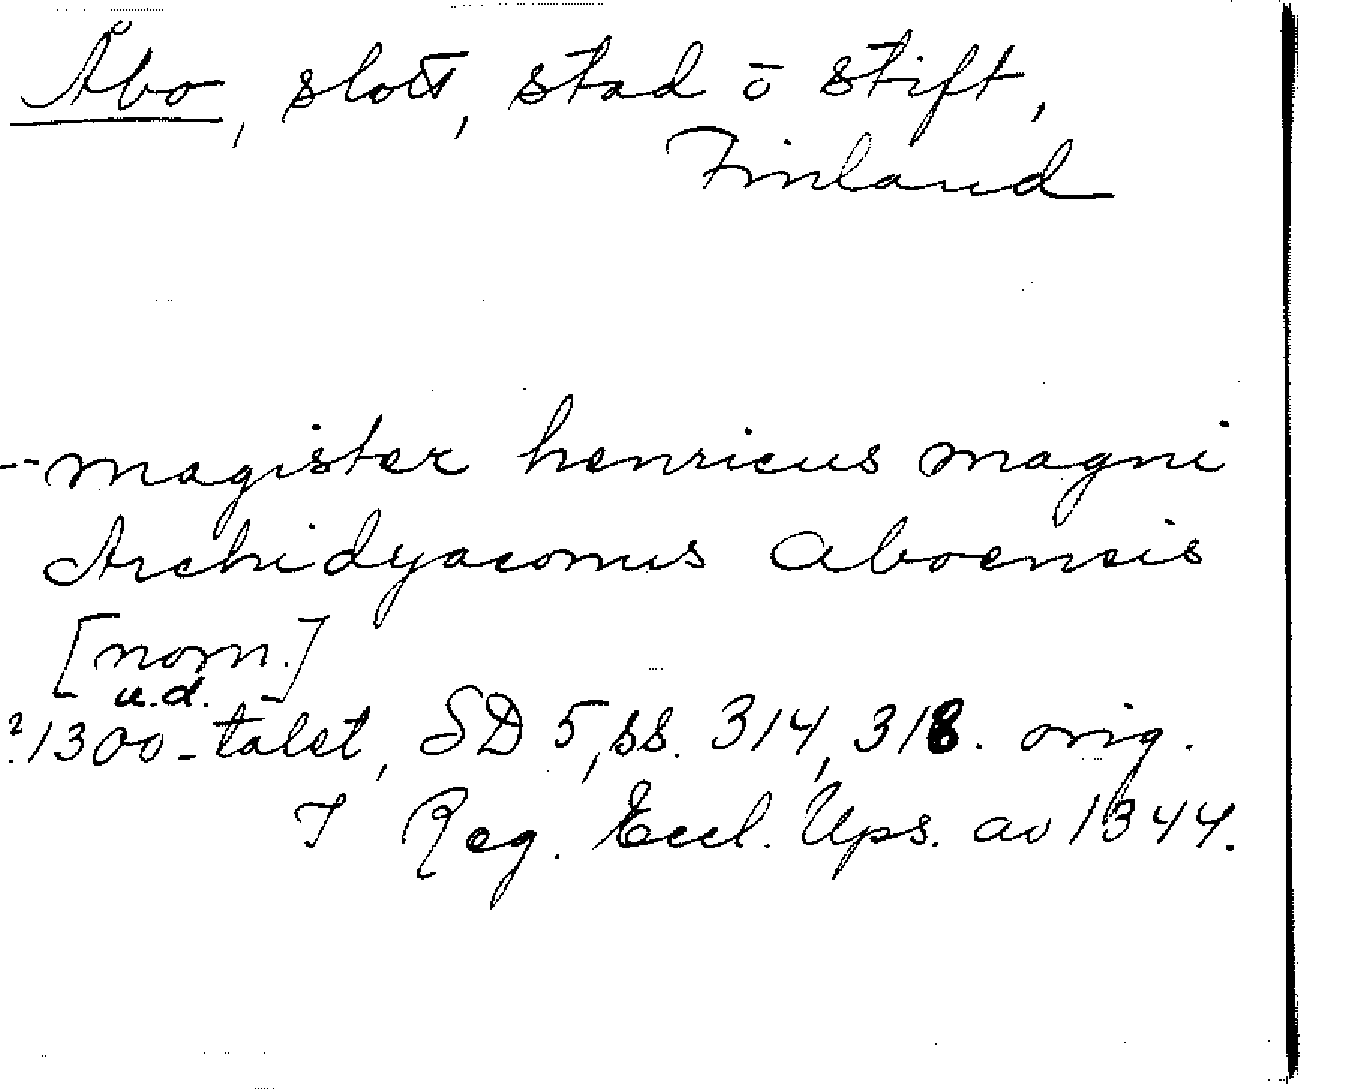 Åbo, slott, stad o stift,
Finland
-- magister henricus magni
Archidyaconus aboensis
[nom.]
u.d.
?1300-talet, SD 5, ss. 314, 318. orig.
I Reg. Eccl. Ups. av 1344.